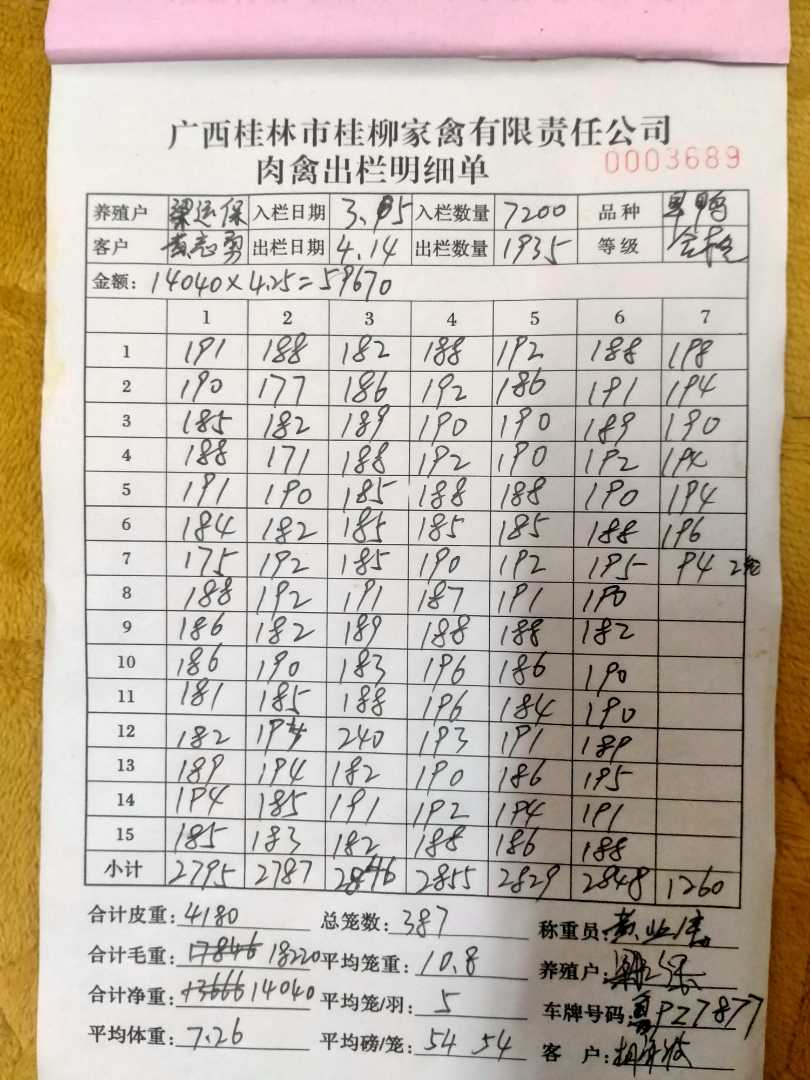 广西桂林市桂柳家禽有限责任公司
肉禽出栏明细单 0003689
养殖户 梁运保 入栏日期 3.15 入栏数量 7200 品种 旱鸭
客户 黄志勇 出栏日期 4.14 出栏数量 1935 等级
金额: 14040×4.25=59670
1 2 3 4 5 6 7
1 191 188 182 188 192 188 198
2 190 177 186 192 186 191 194
3 185 182 189 190 190 189 190
4 188 171 188 192 190 192 194
5 191 190 185 188 188 190 194
6 184 182 185 185 185 188 196
7 175 192 185 190 192 195 94 2笼
8 188 192 191 187 191 190
9 186 182 189 188 188 182
10 186 190 183 196 186 190
11 181 185 188 196 184 190
12 182 194 240 193 191 189
13 189 194 182 190 186 195
14 194 185 191 192 194 191
15 185 183 182 188 186 188
小计 2795 2787 2846 2855 2829 2848 1260
合计皮重: 4180 总笼数: 387 称重员:
合计毛重: 17846 18220 平均笼重: 10.8 养殖户:
合计净重: 13666 14040 平均笼/羽: 5 车牌号码: PZ7877
平均体重: 7.26 平均磅/笼: 54 54 客户: